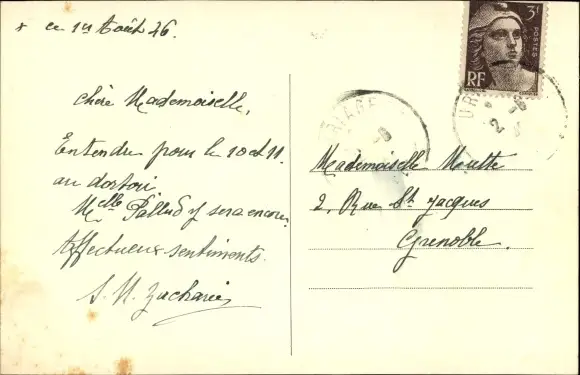 ce 1er Août 46.
Chère Mademoiselle,
Entendu pour le 10 et 11.
au dortoir
Melle Pallud y sera encore.
Affectueux sentiments.
S. M. Zacharie
3F
POSTES
RF
URIAGE
Mademoiselle Moutte
2, Rue St Jacques
Grenoble.